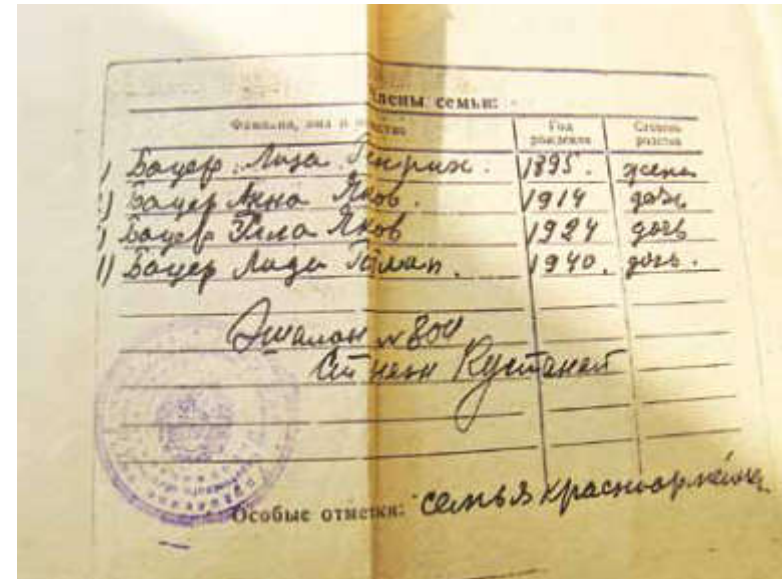 Члены семьи:
Фамилия, имя и отчество
Год рождения
Степень родства
1) Бауер Лиза Генрих. 1895. жена
2) Бауер Анна Яков. 1914 дочь
3) Бауер Элла Яков 1924 дочь
4) Бауер Лида 1940. дочь.
Эшалон № 804
Кустанай
Особые отметки: семья красноармейца